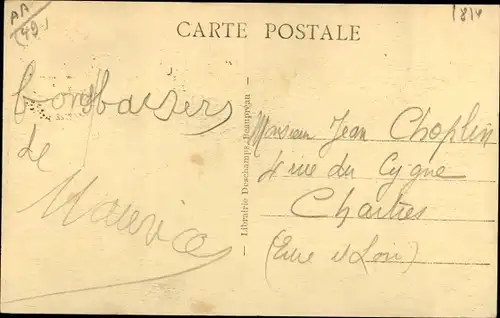 AA
(49)
1814
CARTE POSTALE
bons baisers
de
Maurice
Librairie Deschamps, Beaupréau
Monsieur Jean Choplin
4 rue du Cygne
Chartres
(Eure et Loir)